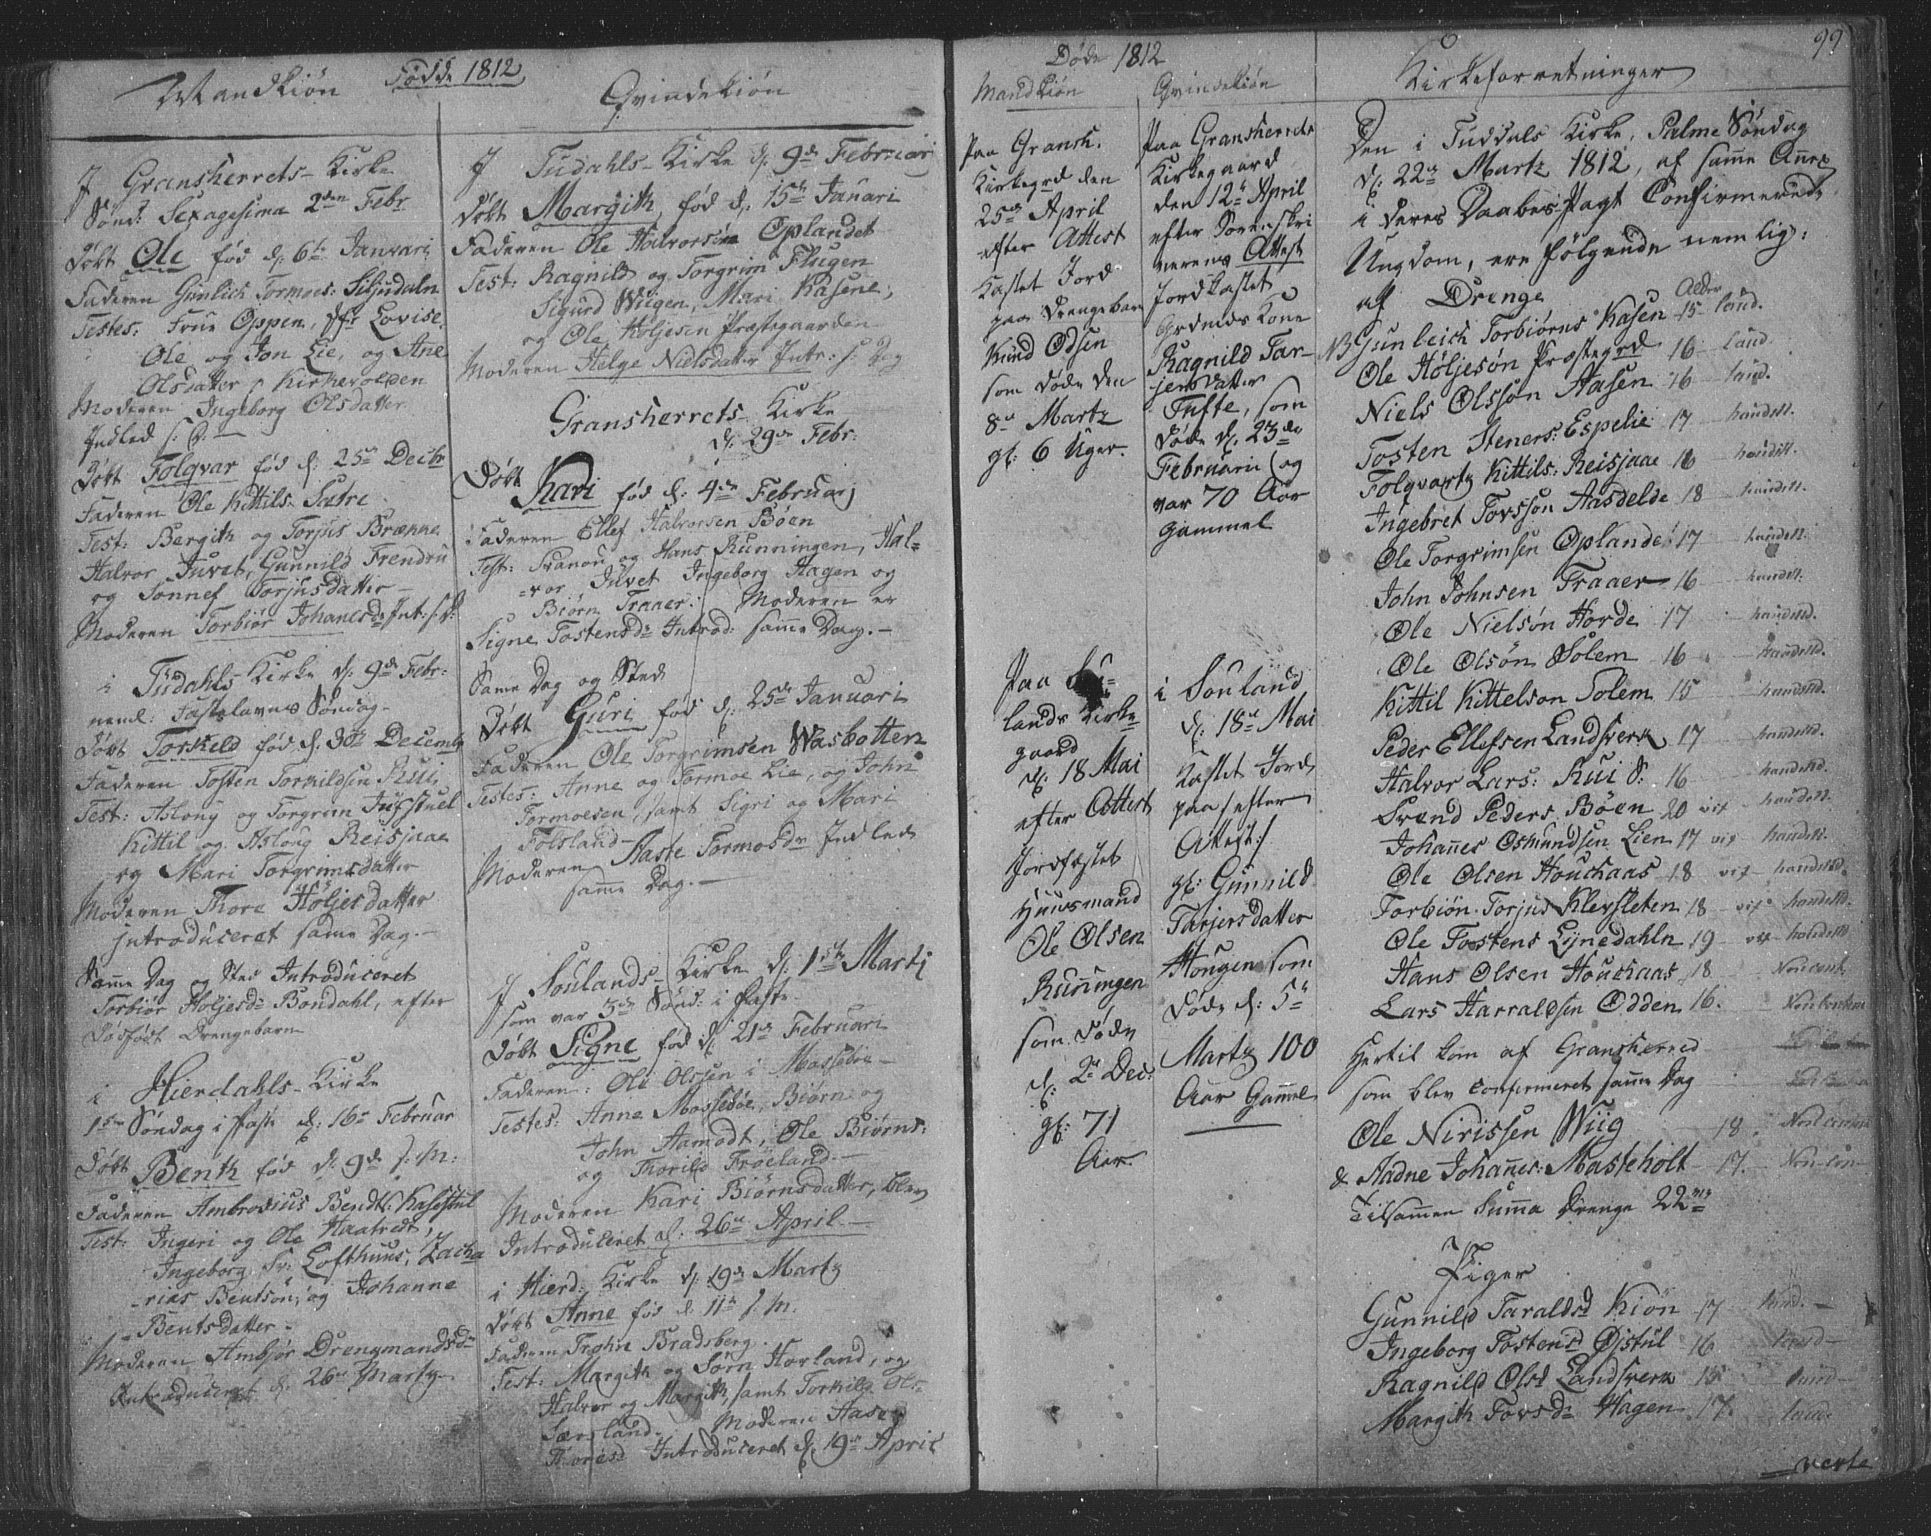 Fødde 1812
Mandkiön
I Gransherrets Kirke
Sönd: Sexagesima 2den Febr
Döbt Ole fød d: 6te Januari
Faderen Gunlich Tormoes: Siljudaln
Testes. Oppen, Lovise
Ole og Jon Lie, og Ane
Olsdatter Kirkevolden
Moderen Ingeborg Olsdatter
Indled s. D.
Döbt Folqvar fød d: 25de Decbr
Faderen Ole Kittils: Satre
Test: Bergith og Torjus Brænne
Halvor Juvet, Gunnild Frendru
og Sonnef Torjusdatter
Moderen Torbiör Johanesdr Int: s: D:
i Tudahls Kirke d: 9de Febr:
neml: Fastelavns Söndag
Döbt Torkeld fød d. 30te Decemb
Faderen Tosten Torkildsen Rui
Test: Asloug og Torgrim
Kittil og Aslöug Reisjaae
og Mari Torgrimsdatter
Moderen Thore Höljesdatter
Introduceret same Dag.
Same Dag og Sted Introduceret
Torbiör Höljesdr Bondahl, efter
Dödfödt Drengebarn
i Hierdahls Kirke
1ste Söndag i Faste d: 16de Februar
Döbt Benth fød d. 9de s. M:
Faderen Ambrosius Bendts: Kasestul
Test: Ingeri og Ole Haatvedt,
Ingeborg Sv: Lofthuus, Zacha
-rias Bentsön, og Johanne
Bentsdatter
Moderen Ambjör Drengmandsdr
Introduceret d: 26de Martz
Qvindekiön
I Tudahls Kirke d. 9de Februari
Döbt Margith, fød d. 15de Januari
Faderen Ole Halvorsön Oplandet
Test: Ragnild og Torgrim Flugen
Sigurd Wiigen, Mari Kasene,
og Ole Höljesen Præstegaarden
Moderen Helge Nielsdatter Intr: s. Dag
Gransherrets Kirke
d. 29de Febr:
Döbt Kari fød d. 4de Februarij
Faderen Ellef Halvorsen Böen
Test: Svanou og Hans Runningen, Hal=
=vor Juvet Ingeborg Hagen og
Biörn Traaer: Moderen er
Signe Tostensdr Introd: samme Dag.
Same Dag og Sted
Döbt Guri fød d. 25de Januari
Faderen Ole Torgrimsen Wasbotten
Testes: Anne og Tormoe Lie, og John
Tormoesen, samt Sigri og Mari
Folsland
Moderen Aaste Tormosdr Indled
samme Dag.
I Soulands Kirke d. 1ste Martj
som var 3die Sönd: i Faste
Döbt Signe fød d. 21de Februari
Faderen: Ole Olssen i Mossebøe
Testes: Anne Mossebøe, Biörn og
John Aamodt, Ole Biörns:
og Thorild Fröeland.
Moderen Kari Biörnsdatter, blev
Introduceret d. 26de April.
i Hierd: Kirke d. 19de Martz
Döbt Anne fød d. 11te s. M.
Faderen Bradsberg.
Test: Margith og Sörn Horland, og
Halvor og Margith, samt Torkild Ols:
Særsland. Moderen Aase
Introduceret d. 19de April
Døde 1812
Mandkiön
Paa Gransh.
Kirkegrd den
25de April
efter Attest
Kastet Jord
paa Drengebarn
Knud Odsen
som döde den
8de Martz
gl: 6 Uger.
Paa
lands Kirke
gaard
d: 18 Mai
efter Attest
Jordfæstet
Huusmand
Ole Olsen
Runingen
som döde
d: 2de Dec:
gl: 71
Aar.
Qvindekiön
Paa Gransherrets
Kirkegaard
den 12te April
efter Sorenskri
verens Attest
Jordkastet
Grdmds Kone
Ragnild Tar-
jersdatter
Tufte, som
Döde d. 23de
Februari og
var 70 Aar
gammel
i Souland
d: 18de Mai
Kastet Jord
paa /efter
Attest/
gl: Gunnild
Tarjersdatter
Hongen som
Döde d: 5te
Martz 100
Aar Gamel
99
Kirkeforretninger
Den i Tuddals Kirke, Palme Söndag
d: 22de Martz 1812, af samme Annex
i deres Daabes-Pagt Confirmerede
Ungdom, ere følgende nemlig:
af Drenge Alder
NB Gunleich Torbiörns Kasen 15 - Saud.
Ole Höljesön Præstegrd 16 - Saud.
Niels Olsön Aasen 16 - Saud.
Tosten Steners: Espelie 17 - haudest.
Folqvartz Kittils: Reisjaae 16 - haudest.
Ingebret Tovsson Aasdelde 18 - haudest.
Ole Torgrimsen Oplande: 17 - haudest.
John Johnsen Traaer 16 - haudest.
Ole Nielsön Horde 17
Ole Olsön Solem 16
Kittil Kittelson Solem 15
Peder Ellefsen Landsverk 17
Halvor Lars: Rui S: 16
Svend Peders. Böen 20
Johannes Osmundsen Lien 17
Ole Olsen Houchaas 18
Torbiön Torjus Klevsleten 18
Ole Tostens Lijnedahln 19
Hans Olsen Houchaas 18
Lars Harraldsen Odden 16.
Hertil kom af Gransherred
som blev confirmeret samme Dag
Ole Nirissen Wiig 18.
& Aadne Johannes: Masteholt 17.
Tilsammen Summa Drenge 22
Piger
Gunnild Taraldsd Kiön 17
Ingeborg Tostensd Östul 16
Ragnild Olsd Landsverk 15
Margith Tovsdr Hagen 17.
verte